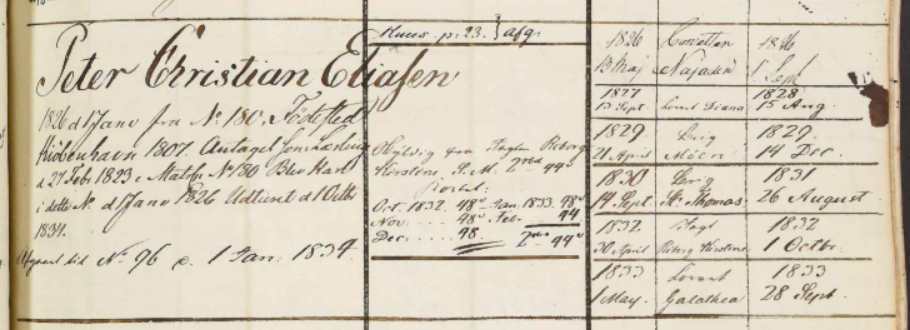 Peter Christian Eliasen
1826 d 1 Janr fra No 180. Fødested
Kiöbenhavn 1807. Antaget som Lærling
d 27 Febr 1823 i Matr No 180 Blev Karl
i dette No d 1 Janr 1826 Udtient d 1 Octbr
1834.
Afgaaet til No 96 d. 1 Jan: 1834.
p. 23. } afg.
fra
2 44
Octr. 1832. 48 Jan. 1833. 48
Nov ..... 48 Feb. 44
Dec ..... 48. 2 44
1826 Corvetten 1826
13 Maj Najaden 1 Sept
1827 1828
13 Sept. Diana 15 Aug.
1829 Brig 1829.
21 April Möen 14 Dec.
1830 Brig 1831
14 Sept. St. Thomas 26 August
1832. 1832
30 April 1 Octbr.
1833 1833
1 May. Galathea 28 Sept.